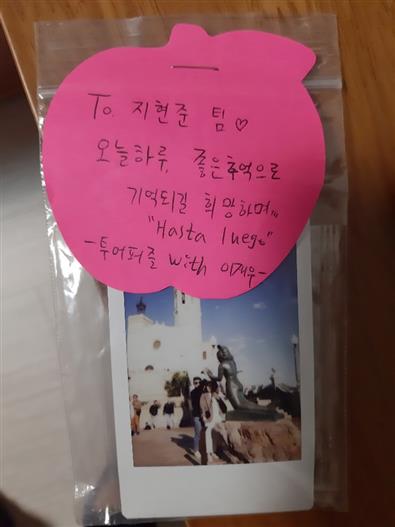 To. 지현준 팀♡
오늘하루, 좋은추억으로
기억되길 희망하며,,,
"Hasta luego"
-투어퍼즐 with 이재우-